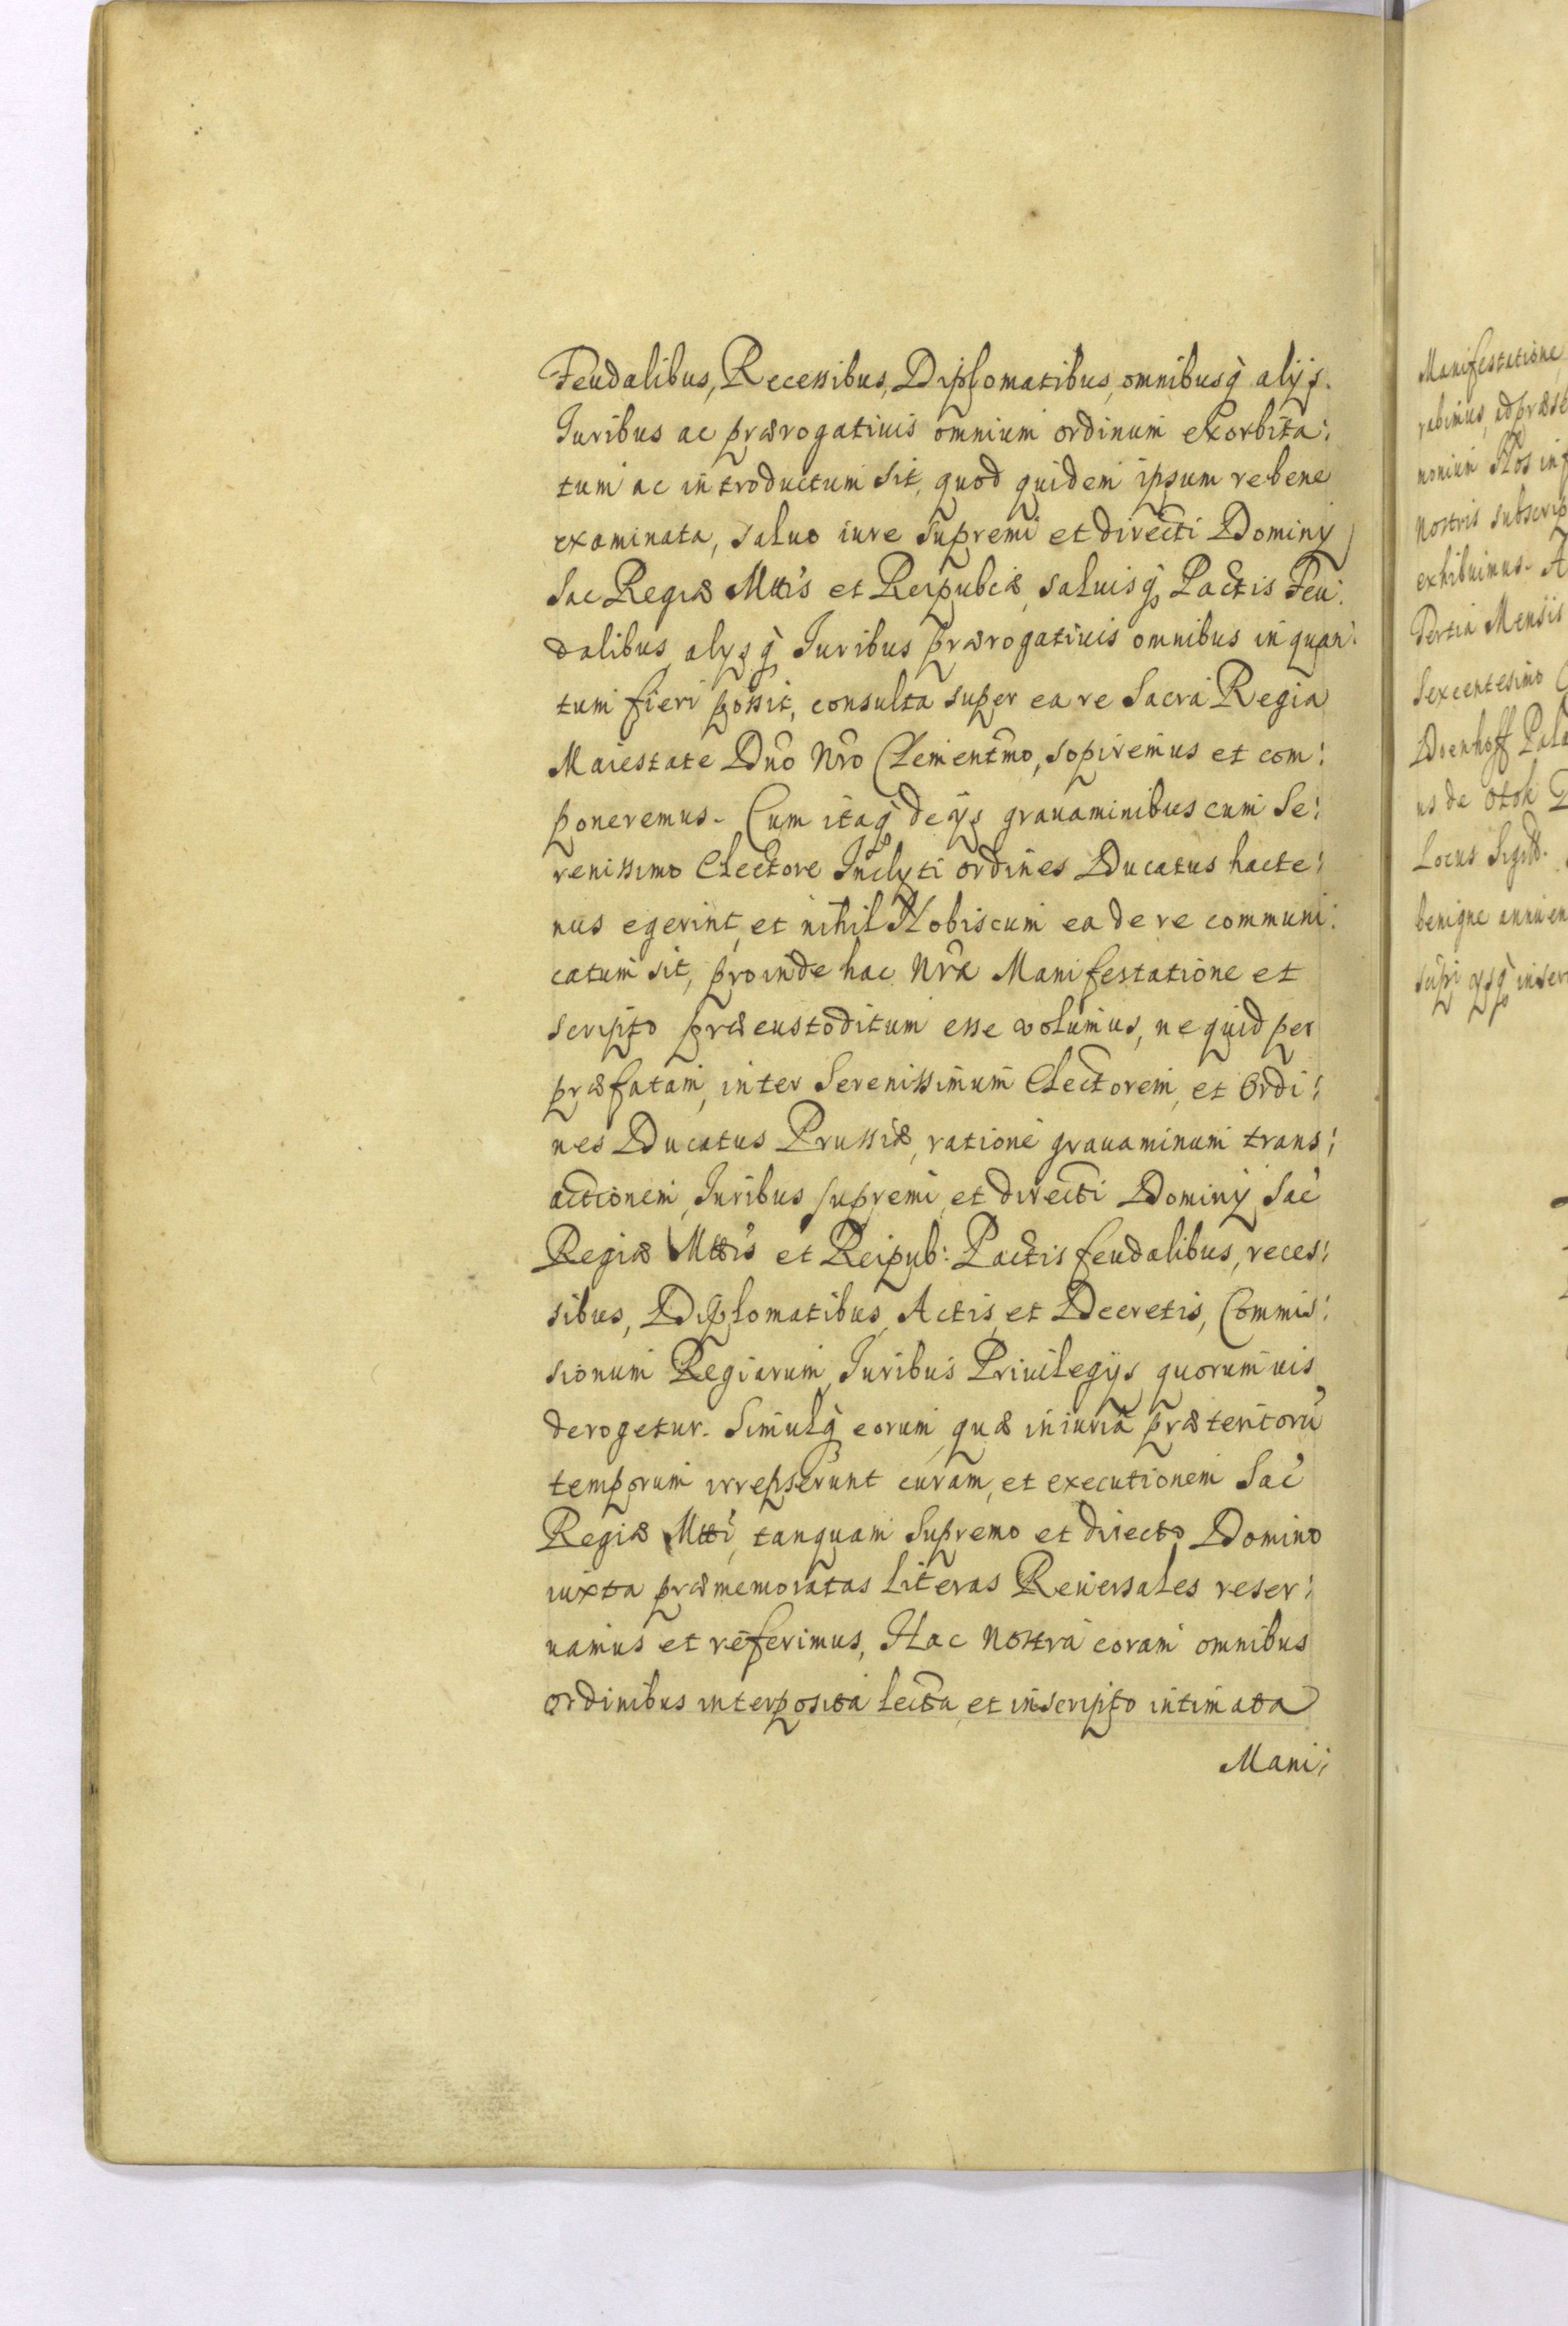 Feudalibus, Recessibus, Diplomatibus, omnibusq̀ₛ alijs.
Iuribus ac prærogatiuis omnium ordinum exorbita:
tum ac introductum sit, quod quidem ipsum re bene
examinata, saluo iure supremi et directi Dominij
Sac Regiæ Mttis et Reipubcæ, saluisq̀ₛ Pactis Feu:
dalibus, alysq̀ₛ Iuribus prærogatiuis omnibus in quan:
tum fieri possit, consulta super ea re Sacra Regia
Maiestate Dno Nro Clementmo, sopiremus et com:
poneremus. Cum itaq̀ₛ de ijs grauaminibus cum Se:
renissimo Electore Inclyti ordines Ducatus hacte:
nus egerint, et nihil Nobiscum ea de re communi:
catum sit, proinde hac Nra Manifestatione et
scripto præcustoditum esse volumus, ne quid per
præfatam, inter Serenissimum Electorem, et Ordi:
nes Ducatus Prussiæ, ratione grauaminum trans:
actionem, Iuribus supremi, et directi Dominij Sac
Regiæ Mttis et Reipub: Pactis feudalibus, reces:
sibus, Diplomatibus, Actis, et Decretis, Commis:
sionum Regiarum, Iuribus Priuilegijs quorumuis
derogetur. Simulq̀ₛ eorum quæ iniuria præteritorũ
temporum irrepserunt curam, et executionem Sac
Regiæ Mtti, tanquam Supremo et directo Domino
iuxta præmemoratas literas Reuersales reser:
uamus et referimus, Hac Nostra coram omnibus
ordinibus interposita lecta, et in scripto intimata
Mani:
Manifestatione
rabimus, id præse
monium Nos inf
Nostris subscrip
exhibuimus. A
Tertia Mensis
Sexcentesimo
Doenhoff Pala
us de Otok
Locus Sigill.
benigne annuen